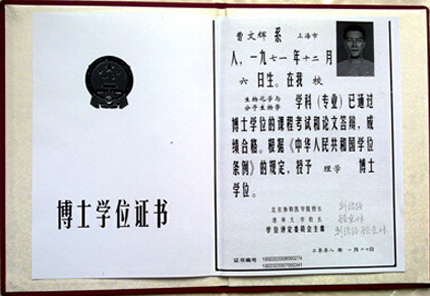 博士学位证书
曹文辉 系 上海市
人，一九七一年十二月
六日生。在我 校
生物化学与
分子生物学
学科（专业）已通过
博士学位的课程考试和论文答辩，成
绩合格。根据《中华人民共和国学位
条例》的规定，授予 理学 博士
学位。
北京协和医学院校长
清华大学校长
学位评定委员会主席
二零零八年 一月十日
证书编号